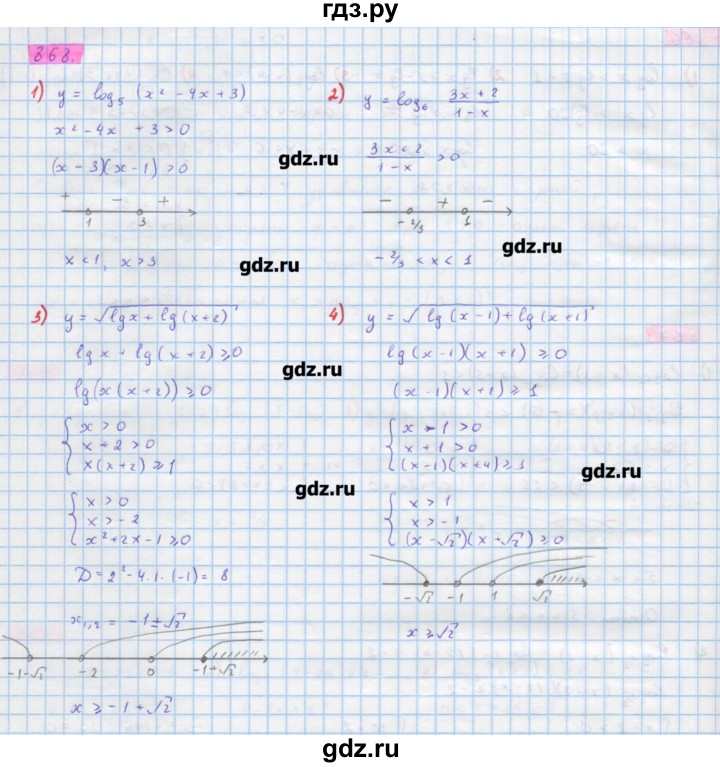 гдз.ру
868.
1) y = log₅ (x² - 4x + 3)
x² - 4x + 3 > 0
(x - 3)(x - 1) > 0
+ - +
1 3
x < 1, x > 3
2) y = log₆ (3x + 2)/(1 - x)
(3x + 2)/(1 - x) > 0
- + -
-2/3 1
-2/3 < x < 1
gdz.ru
gdz.ru
gdz.ru
3) y = √(lg x + lg (x + 2))
lg x + lg (x + 2) ≥ 0
lg (x (x + 2)) ≥ 0
{ x > 0
x + 2 > 0
x (x + 2) ≥ 1
{ x > 0
x > -2
x² + 2x - 1 ≥ 0
D = 2² - 4 · 1 · (-1) = 8
x₁,₂ = -1 ± √2
-1-√2 -2 0 -1+√2
x ≥ -1 + √2
4) y = √(lg (x - 1) + lg (x + 1))
lg (x - 1)(x + 1) ≥ 0
(x - 1)(x + 1) ≥ 1
{ x - 1 > 0
x + 1 > 0
(x - 1)(x + 1) ≥ 1
{ x > 1
x > -1
(x - √2)(x + √2) ≥ 0
-√2 -1 1 √2
x ≥ √2
gdz.ru
gdz.ru
gdz.ru
gdz.ru